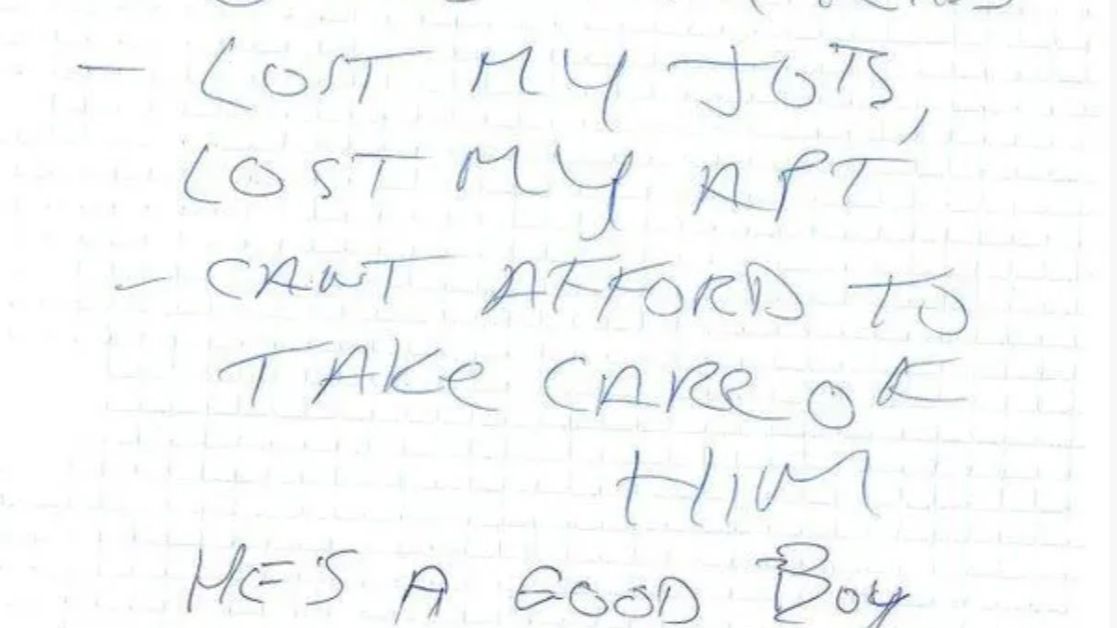 - LOST MY JOB,
LOST MY APT
- CANT AFFORD TO
TAKE CARE OF
HIM
HE'S A GOOD BOY